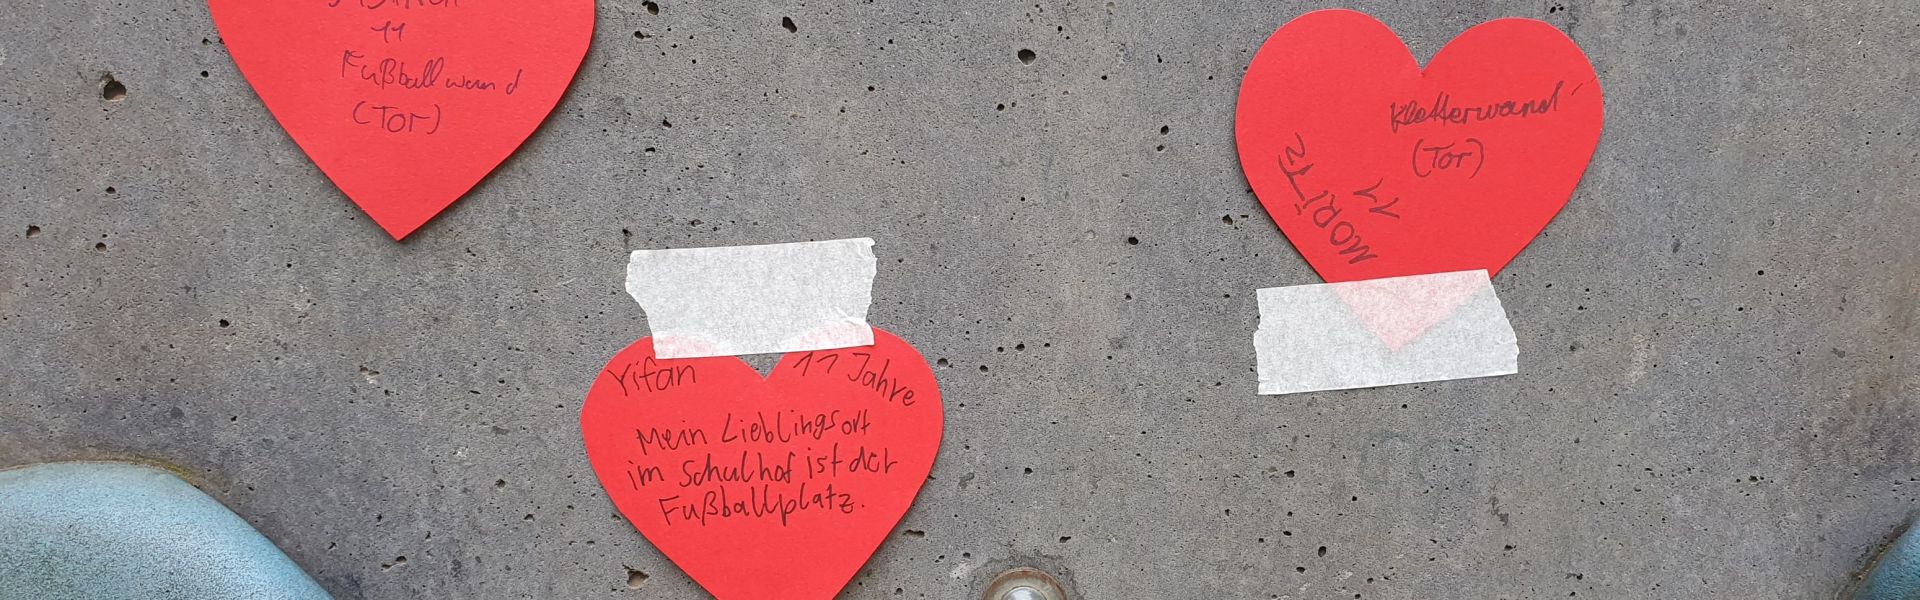 11
Fußballwand
(Tor)
Yifan 11 Jahre
Mein Lieblingsort
im Schulhof ist der
Fußballplatz.
Kletterwand
(Tor)
MORITZ
11